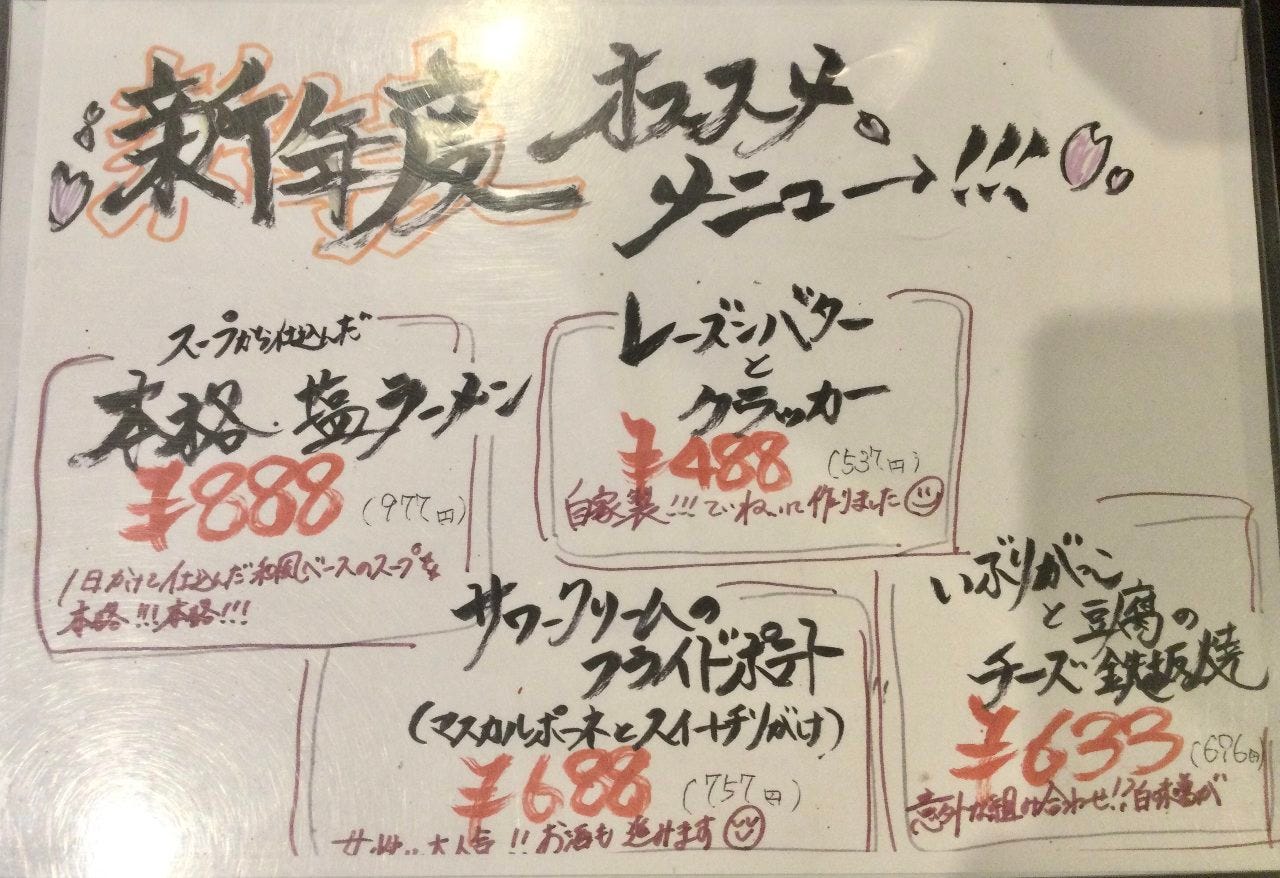 新年度 オススメ
メニュー→!!!
スープから仕込んだ
本格・塩ラーメン
¥888 (977円)
1日かけて仕込んだ和風ベースのスープ
本格!!!本格!!!
レーズンバター
と
クラッカー
¥488 (537円)
自家製!!!ていねいに作りました
サワークリームの
フライドポテト
(マスカルポーネとスイートチリがけ)
¥688 (757円)
大人 !! お酒も進めます
いぶりがっこ
と豆腐の
チーズ鉄板焼
¥633 (696円)
意外な組み合わせ!?白味噌が